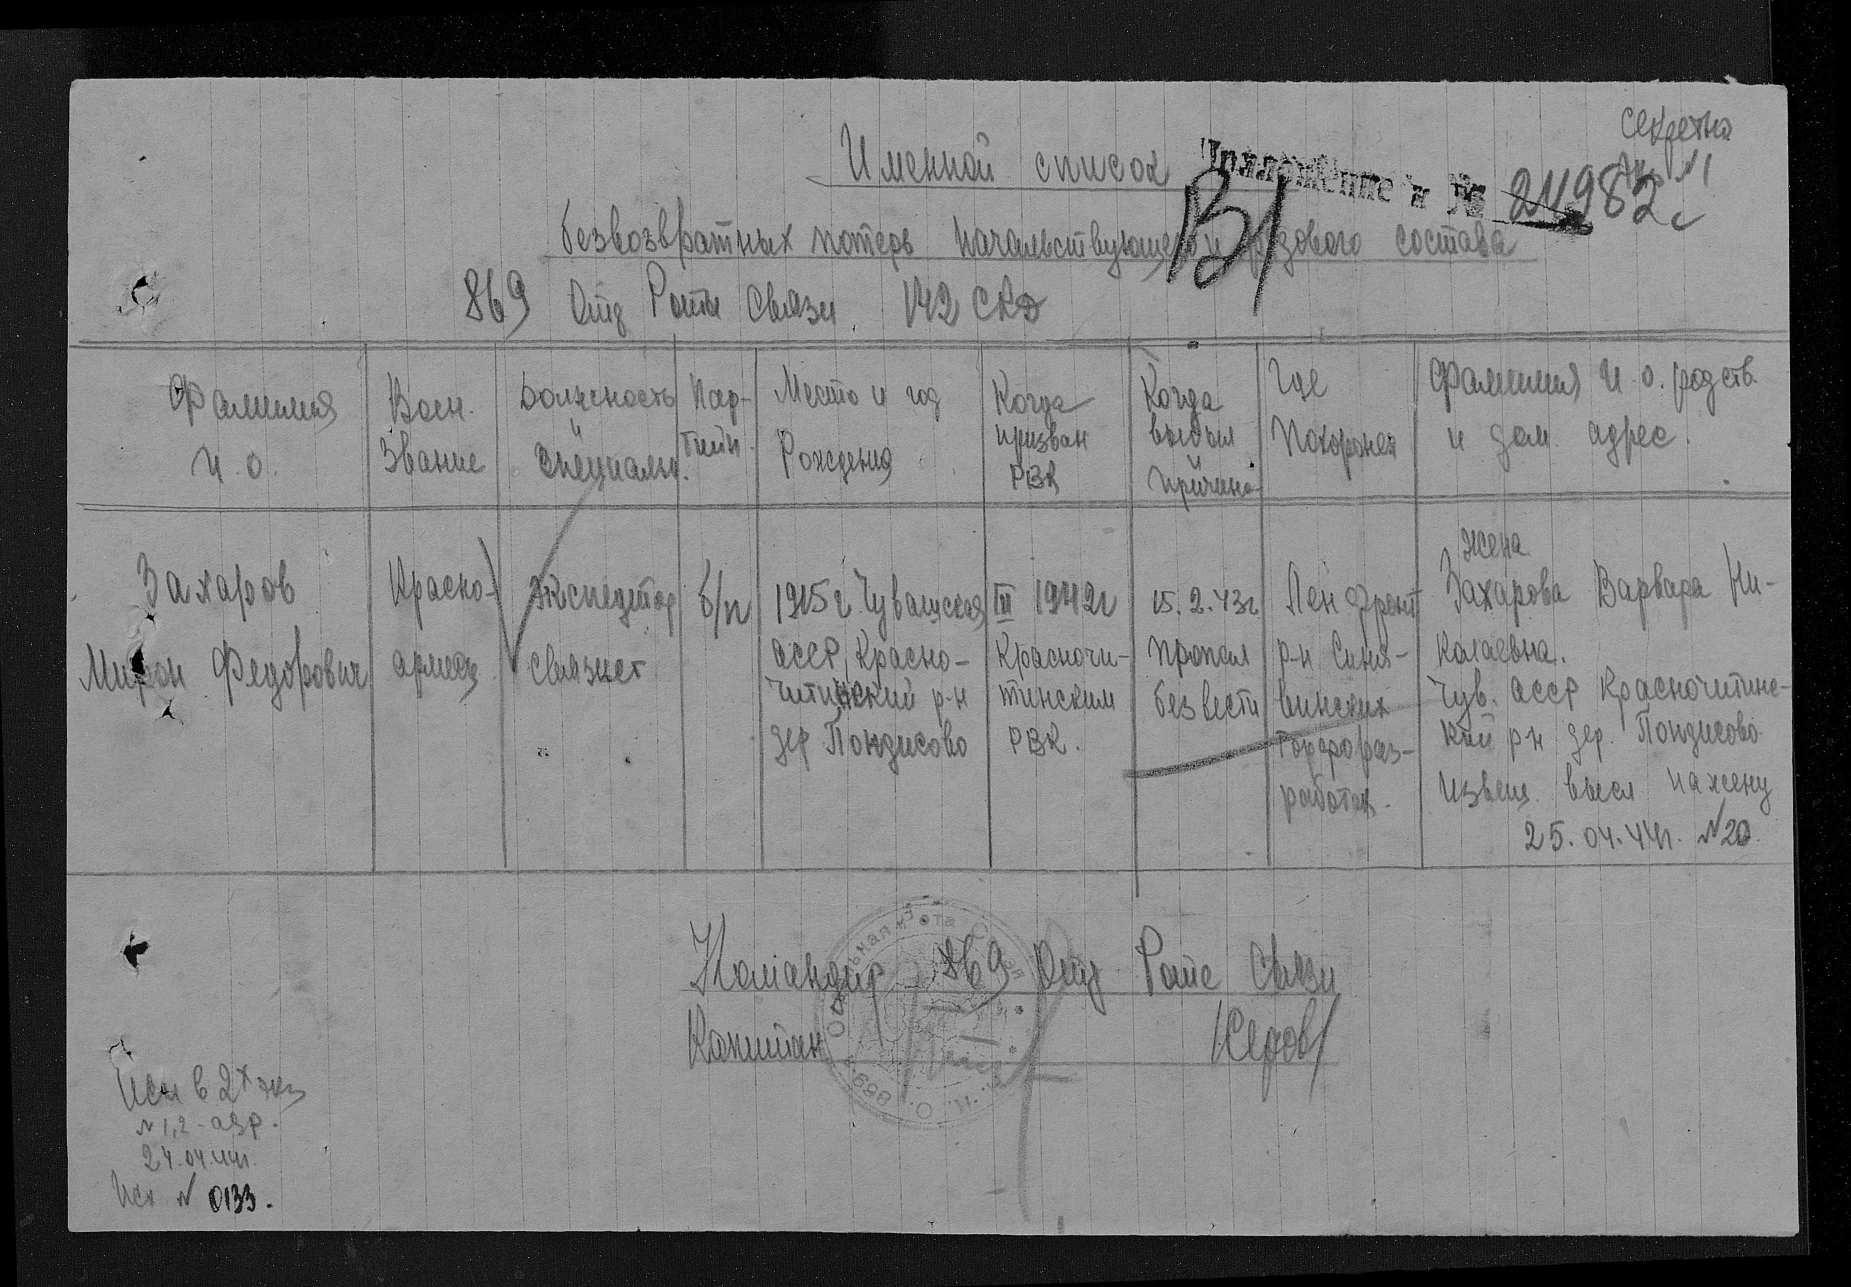 Секретно
Именной список
Приложение к № 24982с
В/
безвозвратных потерь начальствующего и рядового состава
869 Отд Роты Связи 142 СКД
Фамилия И.О.
Воен. Звание
Должность и специальн.
Партийн.
Место и год Рождения
Когда призван РВК
Когда выбыл и причина
Где похоронен
Фамилия И.О. родств. и дом. адрес.
Захаров
Мирон Федорович
Красно-
армеец
Экспедитор
Связист
б/п
1915 г Чувашская
АССР Красно-
Читинский р-н
дер Пондисово
III 1942 г
Красночи-
тинским
РВК.
15.2.43г
пропал
без вести
Лен Фронт
р-н Синя-
винских
торфораз-
работок.
жена
Захарова Варвара Ни-
колаевна.
Чув. АССР Красночитинс-
кий р-н дер. Пондисово
Извещ. высл на жену
25.04.44г. №20
Командир 869 Отд Роте Связи
Капитан /Седов/
Исп в 2х экз
№ 1,2 - адр.
24.04.44г.
Исх № 0133.